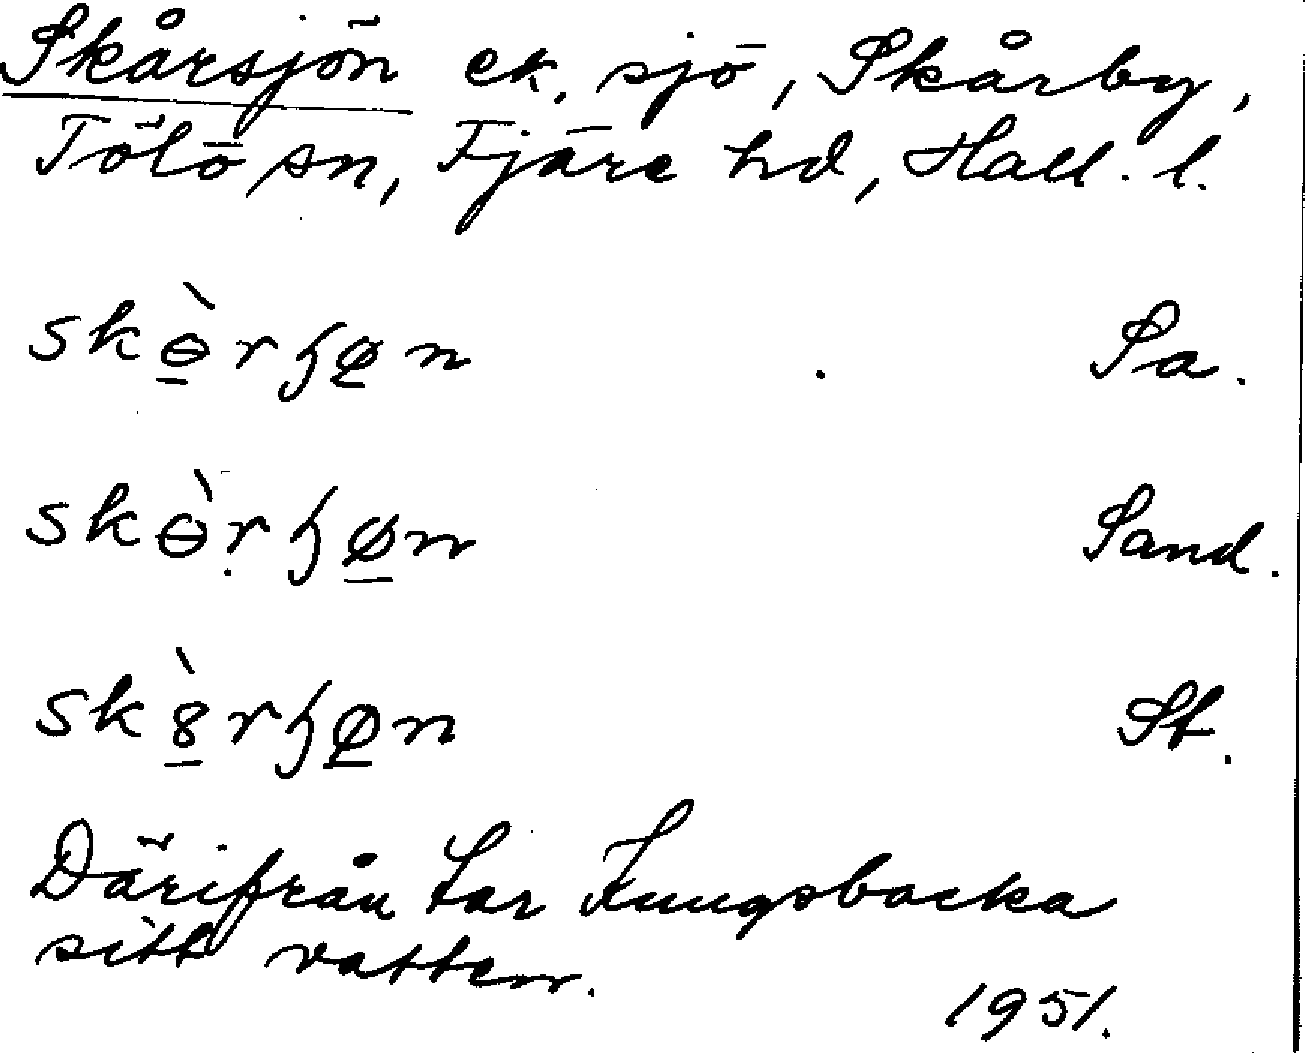 Skårsjön ek. sjö, Skårby,
Tölö sn, Fjäre hd, Hall. l.
skɵ̠̀rɧø̠n Sa.
skɵ̠̀ṛɧø̠n Sand.
sk8̠̀rɧø̠n St.
Därifrån tar Kungsbacka
sitt vatten.
1951.